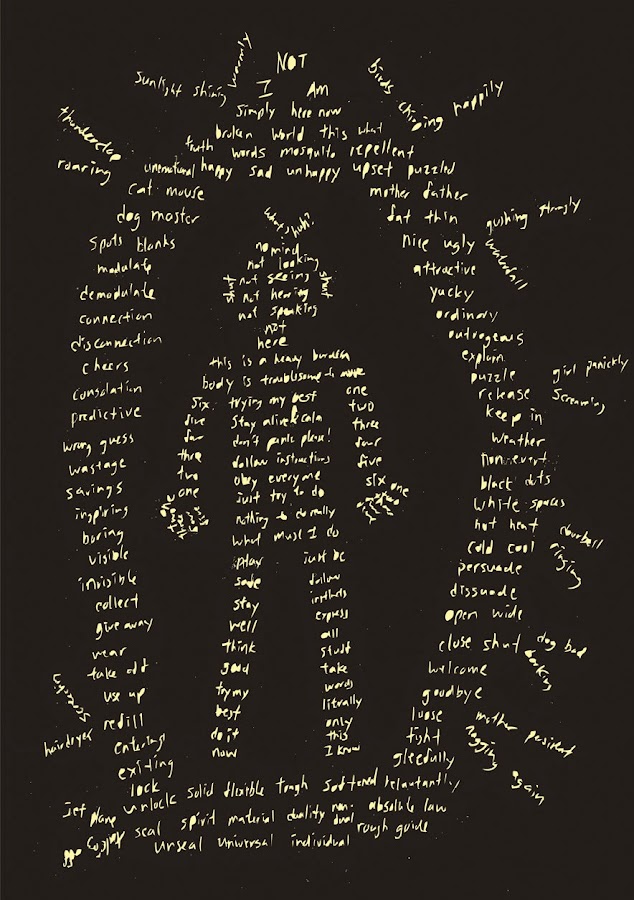 NOT
I Am
simply here now
sunlight shining
birds chirping happily
broken world this what
truth words mosquito repellent
thunderclap
roaring
unemotional happy sad unhappy upset puzzled
cat mouse
mother father
dog master
fat thin
gushing strongly
waterfall
spots blanks
nice ugly
modulate
attractive
demodulate
yucky
connection
ordinary
disconnection
outrageous
cheers
explain
consolation
puzzle
girl panickly
screaming
predictive
release
wrong guess
keep in
wastage
weather
savings
non event
inspiring
black dots
boring
white spaces
visible
hot heat
doorbell
ringing
invisible
cold cool
collect
persuade
give away
dissuade
wear
open wide
take off
close shut
dog bad
barking
use up
welcome
refill
goodbye
hairdryer
entering
loose
mother persistent
nagging
again
exiting
tight
lock
gleefully
what's huh?
no mind
not looking
shut not seeing shut
not hearing
not speaking
not
here
this is a heavy burden
body is troublesome to move
six trying my best one
five stay alive & calm two
four don't panic please! three
three follow instructions four
two obey everyone five
one just try to do six one
nothing to do really
what must I do
play just be
safe follow
stay instincts
well express
think all
good stuff
try my take
best words
do it literally
now only
this
I know
unlock solid flexible tough softened reluctantly
jet plane
seal spirit material duality non-dual absolute law
unseal universal individual rough guide